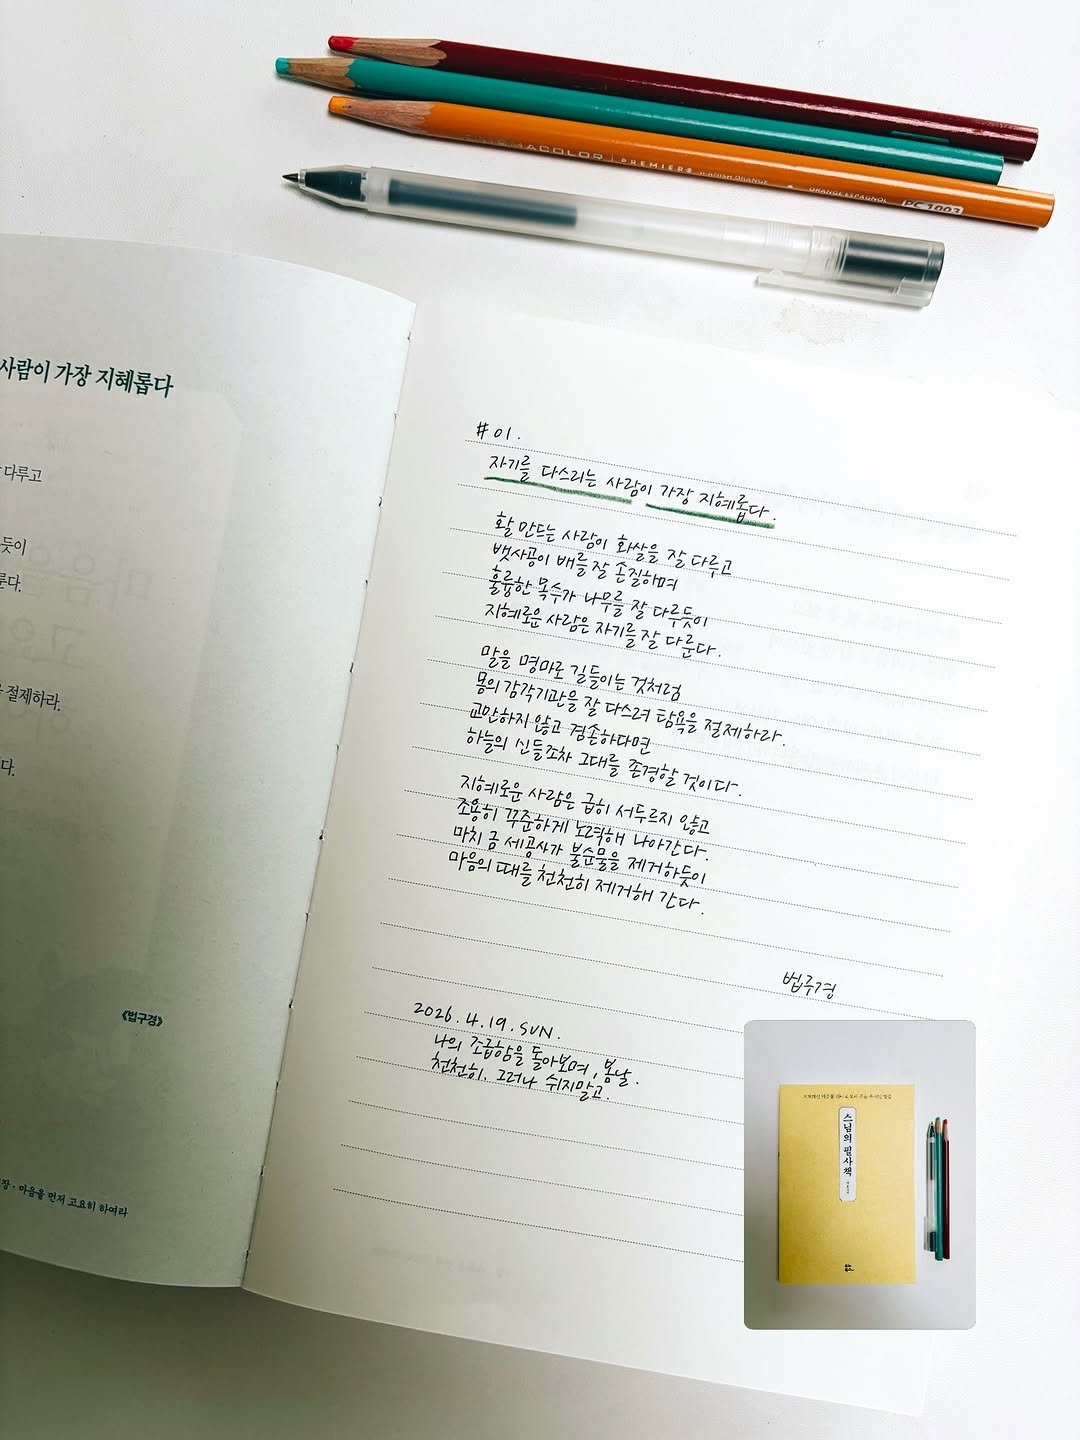 PRISMACOLOR PREMIER SPANISH ORANGE ORANGE ESPAGNOL PC 1003
사람이 가장 지혜롭다
다루고
듯이
룬다.
절제하라.
다.
《법구경》
장 · 마음을 먼저 고요히 하여라
마음을
고요
#01.
자기를 다스리는 사람이 가장 지혜롭다.
활 만드는 사람이 화살을 잘 다루고
뱃사공이 배를 잘 손질하며
훌륭한 목수가 나무를 잘 다루듯이
지혜로운 사람은 자기를 잘 다룬다.
말을 명마로 길들이는 것처럼
몸의 감각기관을 잘 다스려 탐욕을 절제하라.
교만하지 않고 겸손하다면
하늘의 신들조차 그대를 존경할 것이다.
지혜로운 사람은 급히 서두르지 않고
조용히 꾸준하게 노력해 나아간다.
마치 금 세공사가 불순물을 제거하듯이
마음의 때를 천천히 제거해 간다.
법구경
2026.4.19.SUN.
나의 조급함을 돌아보며, 봄날.
천천히. 그러나 쉬지말고.
스님의 필사책